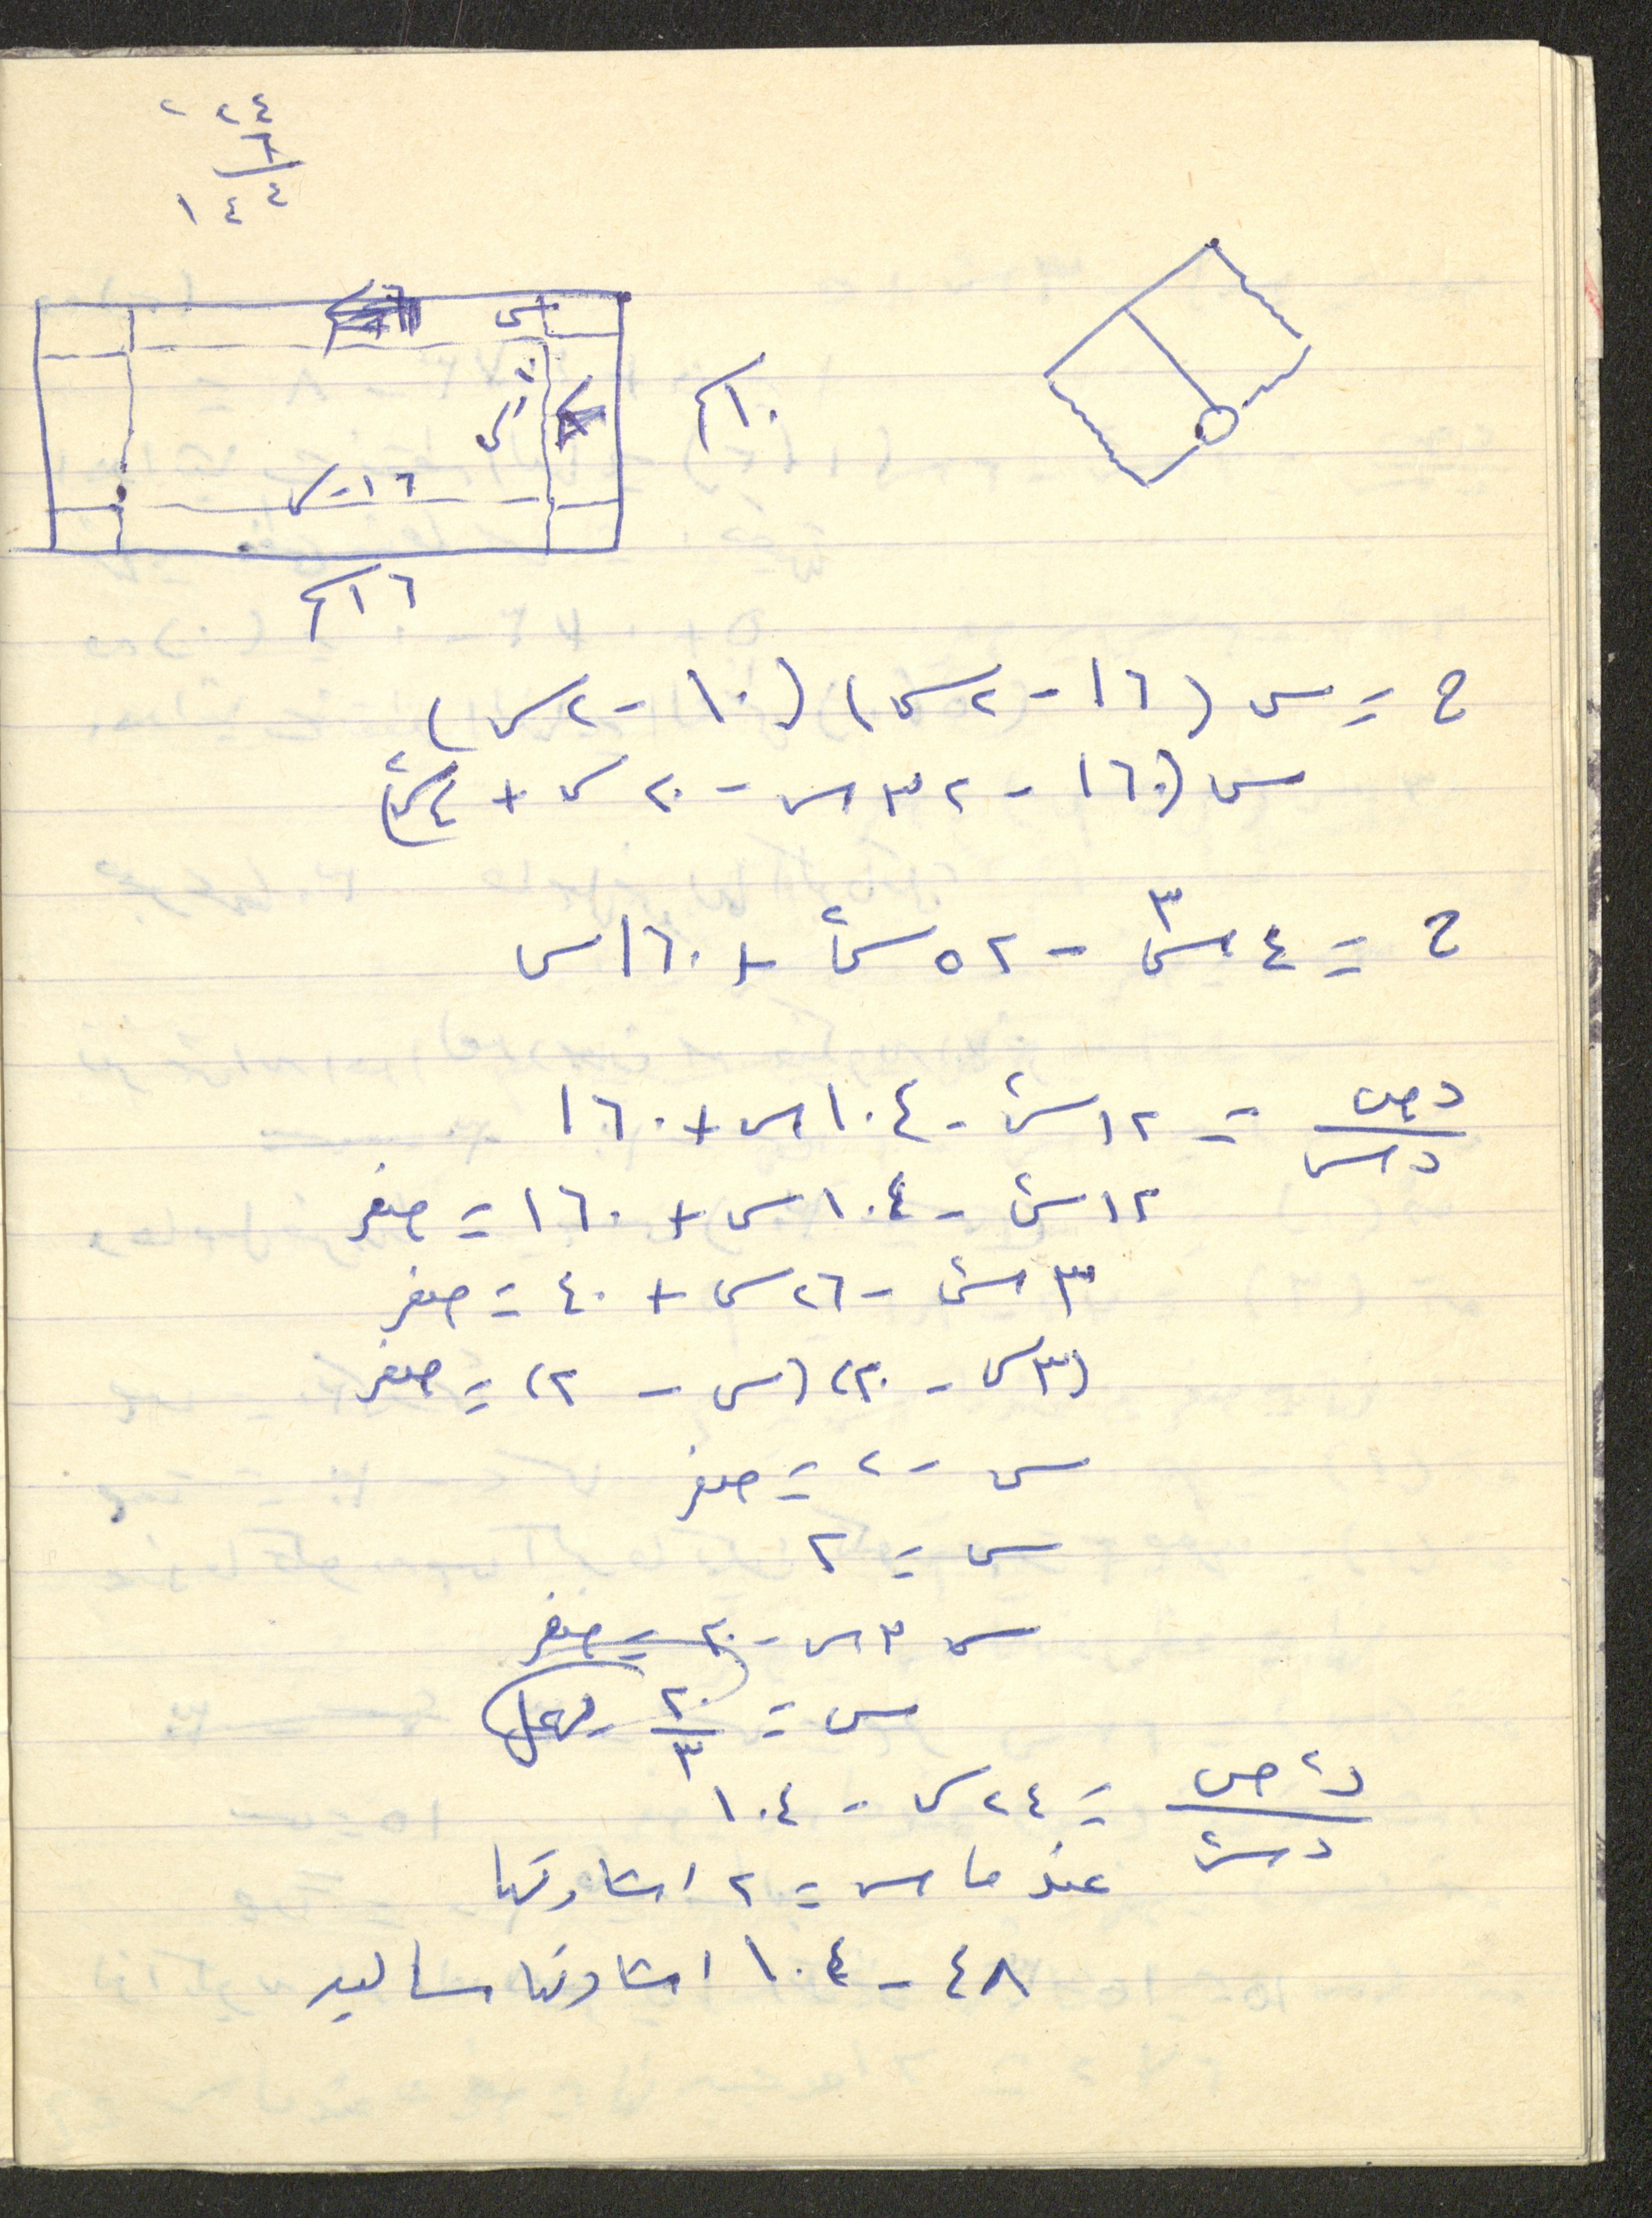 ٢٤ ٢
٦
١٤٤
س
١٠
١٦
١٠سم
١٦سم
ح = س (١٦ - ٢س) (١٠ - ٢س)
س (١٦٠ - ٣٢س - ٢٠س + ٤س٢)
ح = ٤س٣ - ٥٢س٢ + ١٦٠س
دص/دس = ١٢س٢ - ١٠٤س + ١٦٠
١٢س٢ - ١٠٤س + ١٦٠ = صفر
٣س٢ - ٢٦س + ٤٠ = صفر
(٣س - ٢٠) (س - ٢) = صفر
س - ٢ = صفر
س = ٢
س ٣س - ٢٠ = صفر
س = ٢٠/٣ يهمل
د٢ص/دس٢ = ٢٤س - ١٠٤
عندما س = ٢ اشارتها
٤٨ - ١٠٤ اشارتها سالبه